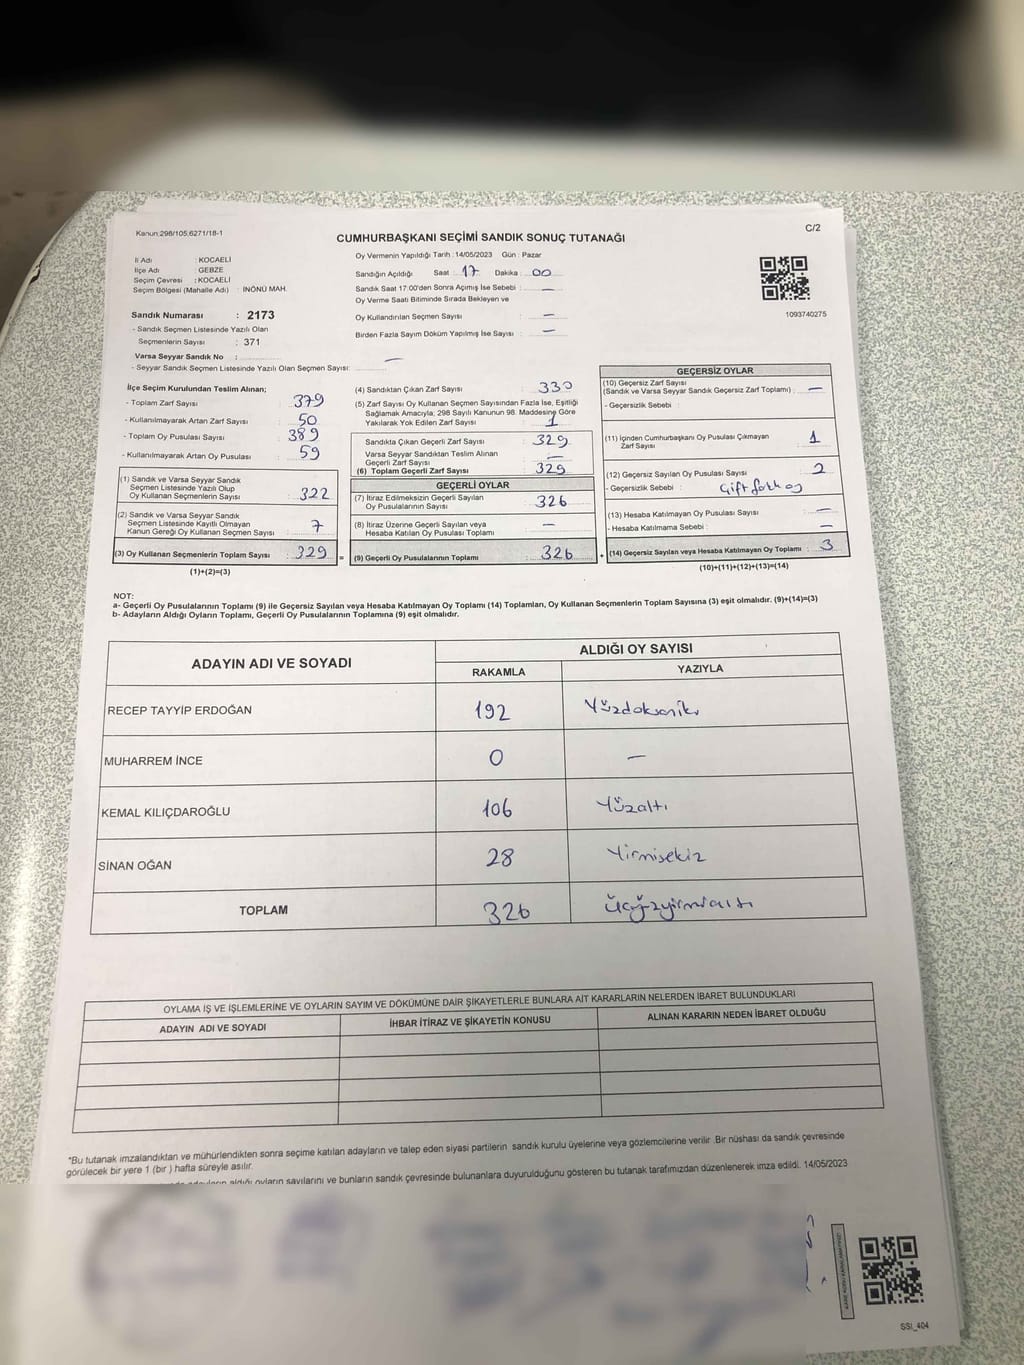 Kanun:298/105,6271/18-1
C/2
CUMHURBAŞKANI SEÇİMİ SANDIK SONUÇ TUTANAĞI
İl Adı : KOCAELİ
İlçe Adı : GEBZE
Seçim Çevresi : KOCAELİ
Seçim Bölgesi (Mahalle Adı) : İNÖNÜ MAH.
Sandık Numarası : 2173
- Sandık Seçmen Listesinde Yazılı Olan
Seçmenlerin Sayısı : 371
Varsa Seyyar Sandık No :
- Seyyar Sandık Seçmen Listesinde Yazılı Olan Seçmen Sayısı: —
Oy Vermenin Yapıldığı Tarih : 14/05/2023 Gün : Pazar
Sandığın Açıldığı Saat : 17 Dakika : 00
Sandık Saat 17:00'den Sonra Açımış İse Sebebi : —
Oy Verme Saati Bitiminde Sırada Bekleyen ve
Oy Kullandırılan Seçmen Sayısı : —
Birden Fazla Sayım Döküm Yapılmış İse Sayısı : —
1093740275
İlçe Seçim Kurulundan Teslim Alınan;
- Toplam Zarf Sayısı : 379
- Kullanılmayarak Artan Zarf Sayısı : 50
- Toplam Oy Pusulası Sayısı : 389
- Kullanılmayarak Artan Oy Pusulası : 59
(1) Sandık ve Varsa Seyyar Sandık
Seçmen Listesinde Yazılı Olup
Oy Kullanan Seçmenlerin Sayısı : 322
(2) Sandık ve Varsa Seyyar Sandık
Seçmen Listesinde Kayıtlı Olmayan
Kanun Gereği Oy Kullanan Seçmen Sayısı : 7
(3) Oy Kullanan Seçmenlerin Toplam Sayısı : 329 =
(1)+(2)=(3)
(4) Sandıktan Çıkan Zarf Sayısı : 330
(5) Zarf Sayısı Oy Kullanan Seçmen Sayısından Fazla İse, Eşitliği
Sağlamak Amacıyla; 298 Sayılı Kanunun 98. Maddesine Göre
Yakılarak Yok Edilen Zarf Sayısı : 1
Sandıkta Çıkan Geçerli Zarf Sayısı : 329
Varsa Seyyar Sandıktan Teslim Alınan
Geçerli Zarf Sayısı : —
(6) Toplam Geçerli Zarf Sayısı : 329
GEÇERLİ OYLAR
(7) İtiraz Edilmeksizin Geçerli Sayılan
Oy Pusulalarının Sayısı : 326
(8) İtiraz Üzerine Geçerli Sayılan veya
Hesaba Katılan Oy Pusulası Toplamı : —
(9) Geçerli Oy Pusulalarının Toplamı : 326 +
GEÇERSİZ OYLAR
(10) Geçersiz Zarf Sayısı
(Sandık ve Varsa Seyyar Sandık Geçersiz Zarf Toplamı) : —
- Geçersizlik Sebebi :
(11) İçinden Cumhurbaşkanı Oy Pusulası Çıkmayan
Zarf Sayısı : 1
(12) Geçersiz Sayılan Oy Pusulası Sayısı : 2
- Geçersizlik Sebebi :
(13) Hesaba Katılmayan Oy Pusulası Sayısı : —
- Hesaba Katılmama Sebebi : —
(14) Geçersiz Sayılan veya Hesaba Katılmayan Oy Toplamı : 3
(10)+(11)+(12)+(13)=(14)
NOT:
a- Geçerli Oy Pusulalarının Toplamı (9) ile Geçersiz Sayılan veya Hesaba Katılmayan Oy Toplamı (14) Toplamları, Oy Kullanan Seçmenlerin Toplam Sayısına (3) eşit olmalıdır. (9)+(14)=(3)
b- Adayların Aldığı Oyların Toplamı, Geçerli Oy Pusulalarının Toplamına (9) eşit olmalıdır.
ADAYIN ADI VE SOYADI ALDIĞI OY SAYISI
RAKAMLA YAZIYLA
RECEP TAYYİP ERDOĞAN 192 Yüzdoksaniki
MUHARREM İNCE 0 —
KEMAL KILIÇDAROĞLU 106 Yüzaltı
SİNAN OĞAN 28 Yirmisekiz
TOPLAM 326 Üçyüzyirmialtı
OYLAMA İŞ VE İŞLEMLERİNE VE OYLARIN SAYIM VE DÖKÜMÜNE DAİR ŞİKAYETLERLE BUNLARA AİT KARARLARIN NELERDEN İBARET BULUNDUKLARI
ADAYIN ADI VE SOYADI İHBAR İTİRAZ VE ŞİKAYETİN KONUSU ALINAN KARARIN NEDEN İBARET OLDUĞU
*Bu tutanak imzalandıktan ve mühürlendikten sonra seçime katılan adayların ve talep eden siyasi partilerin sandık kurulu üyelerine veya gözlemcilerine verilir .Bir nüshası da sandık çevresinde
görülecek bir yere 1 (bir ) hafta süreyle asılır.
adayların aldığı oyların sayılarını ve bunların sandık çevresinde bulunanlara duyurulduğunu gösteren bu tutanak tarafımızdan düzenlenerek imza edildi. 14/05/2023
SSI_404